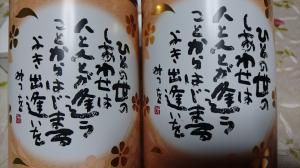 ひとの世の
しあわせは
人と人とが逢う
ことからはじまる
よき出逢いを
みつを
ひとの世の
しあわせは
人と人とが逢う
ことからはじまる
よき出逢いを
みつを